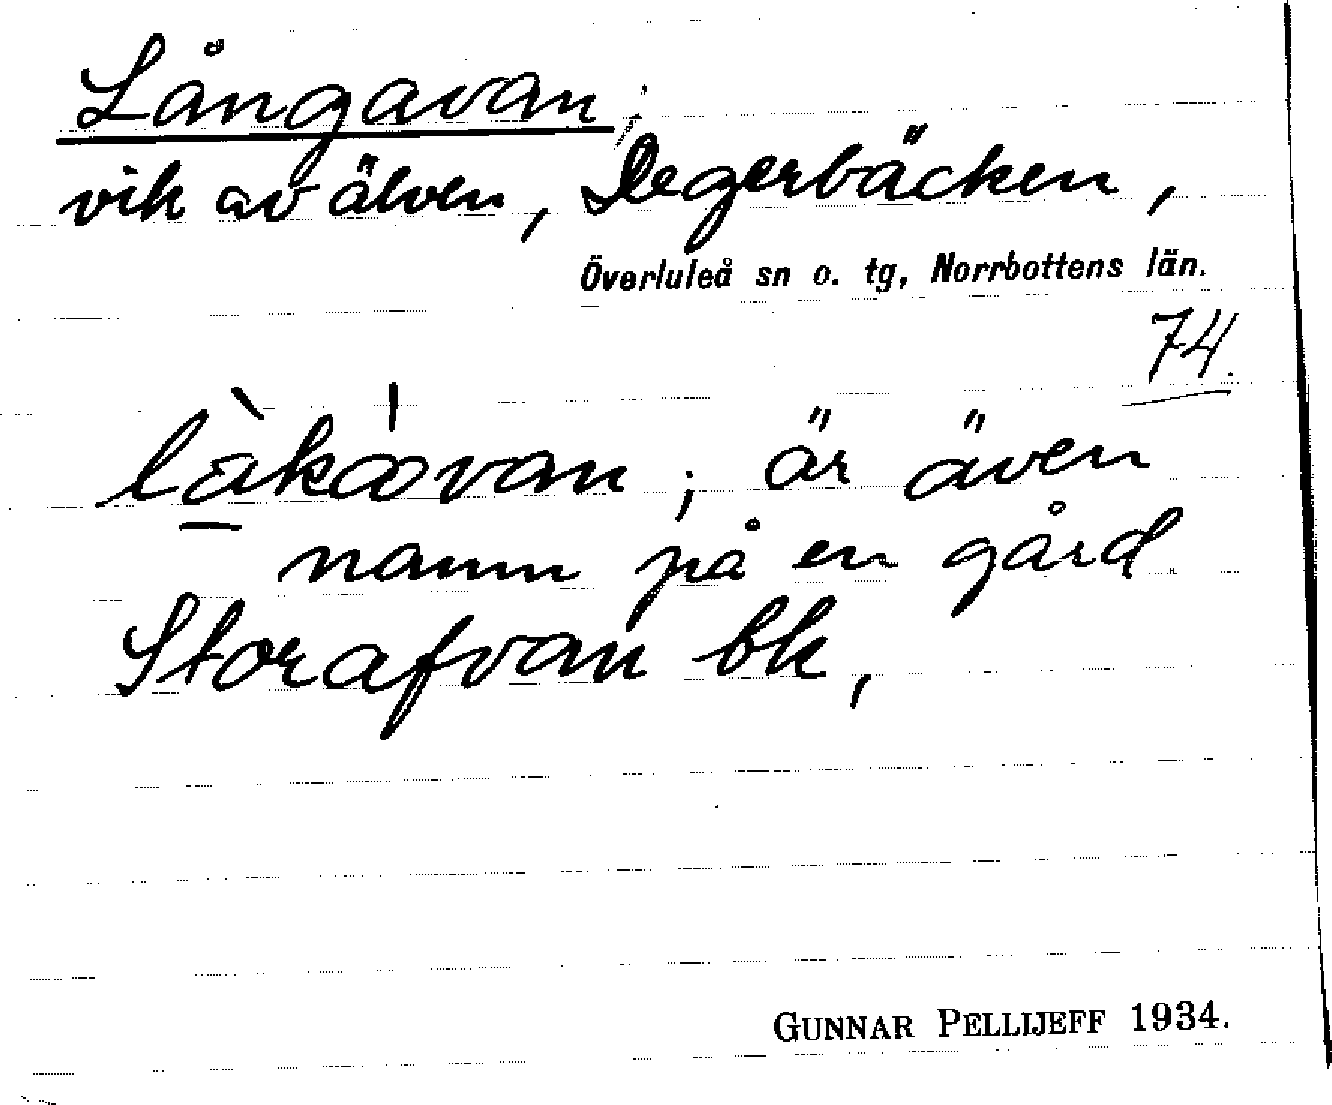 Långavan,
vik av älven, Degerbäcken,
Överluleå sn o. tg, Norrbottens län.
74.
är även
namn på en gård
Storafvan bk,
GUNNAR PELLIJEFF 1934.